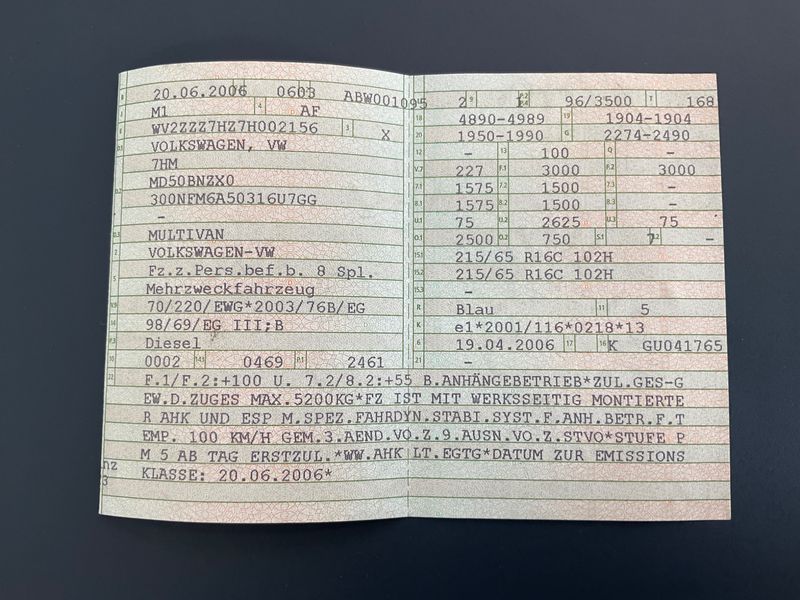 B 20.06.2006 0603 ABW001095
J M1 4 AF
E WV2ZZZ7HZ7H002156 3 X
D.1 VOLKSWAGEN, VW
7HM
D.2 MD50BNZX0
300NFM6A50316U7GG
-
D.3 MULTIVAN
2 VOLKSWAGEN-VW
5 Fz.z.Pers.bef.b. 8 Spl.
Mehrzweckfahrzeug
V.9 70/220/EWG*2003/76B/EG
14 98/69/EG III;B
P.3 Diesel
10 0002 14.1 0469 P.1 2461
L 2 9 1 P.2 P.4 96/3500 T 168
18 4890-4989 19 1904-1904
20 1950-1990 G 2274-2490
12 - 13 100 Q -
V.7 227 F.1 3000 F.2 3000
7.1 1575 7.2 1500 7.3 -
8.1 1575 8.2 1500 8.3 -
U.1 75 U.2 2625 U.3 75
O.1 2500 O.2 750 S.1 7 S.2 -
15.1 215/65 R16C 102H
15.2 215/65 R16C 102H
15.3 -
R Blau 11 5
K e1*2001/116*0218*13
6 19.04.2006 17 K 16 GU041765
21 -
22 F.1/F.2:+100 U. 7.2/8.2:+55 B.ANHÄNGEBETRIEB*ZUL.GES-G
EW.D.ZUGES MAX.5200KG*FZ IST MIT WERKSSEITIG MONTIERTE
R AHK UND ESP M.SPEZ.FAHRDYN.STABI.SYST.F.ANH.BETR.F.T
EMP. 100 KM/H GEM.3.AEND.VO.Z.9.AUSN.VO.Z.STVO*STUFE P
M 5 AB TAG ERSTZUL.*WW.AHK LT.EGTG*DATUM ZUR EMISSIONS
KLASSE: 20.06.2006*